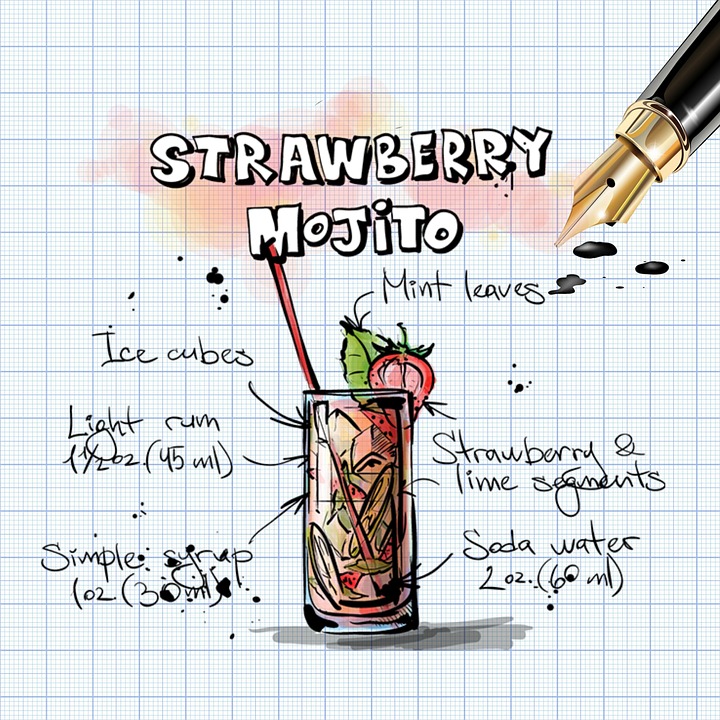 STRAWBERRY
MOJiTO
Mint leaves
Ice cubes
Light rum
1½oz.(45 ml)
Strawberry &
lime segments
Simple syrup
1oz (30ml)
Soda water
2oz.(60 ml)